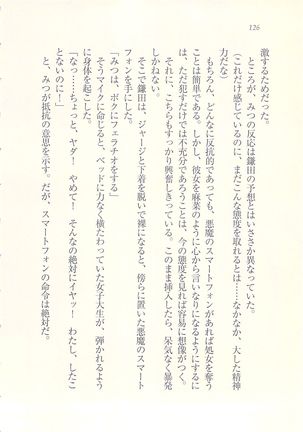 126
激するためだった。
ところが、みつの反応は鎌田の予想とはいささか異なっていた。
（これだけ感じているのに、まだこんな態度を取れるとは……なかなか、大した精神
力だな）
もちろん、どんなに反抗的であっても、悪魔のスマートフォンがあれば処女を奪う
ことは簡単である。しかし、彼女を麻菜のように心から言いなりになるようにするに
は、ただ犯すだけでは不充分であろうことは、今の態度を見れば容易に想像がつく。
それに、こちらもすっかり興奮しきっている。このまま挿入したら、呆気なく暴発
しかねない。
そこで鎌田は、ジャージと下着を脱いで裸になると、傍らに置いた悪魔のスマート
フォンを手にした。
「みつは、ボクにフェラチオをする」
そうマイクに命じると、ベッドに力なく横たわっていた女子大生が、弾かれるよう
に身体を起こした。
「なっ……ちょっと、ヤダ！　やめて！　そんなの絶対にイヤッ！　わたし、したこ
とないのに！」
と、みつが抵抗の意思を示す。だが、スマートフォンの命令は絶対だ。